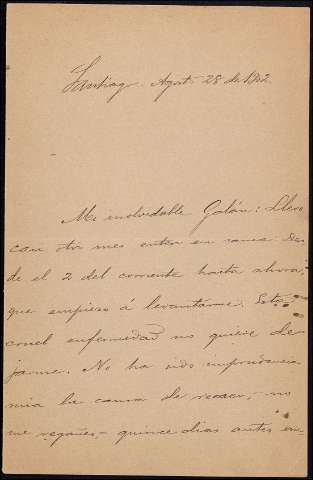 Santiago. Agost. 28 de 1902.
Mi inolvidable Galán: Llevo
casi otro mes entero en cama. Des-
de el 2 del corriente hasta ahora,
que empiezo á levantarme. Esta
cruel enfermedad no quiere de-
jarme. No ha sido imprudencia
mia la causa de recaer, - no
me regañes, - quince dias antes em-